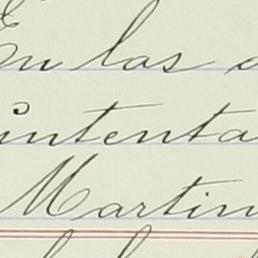 En las
intenta
Martin